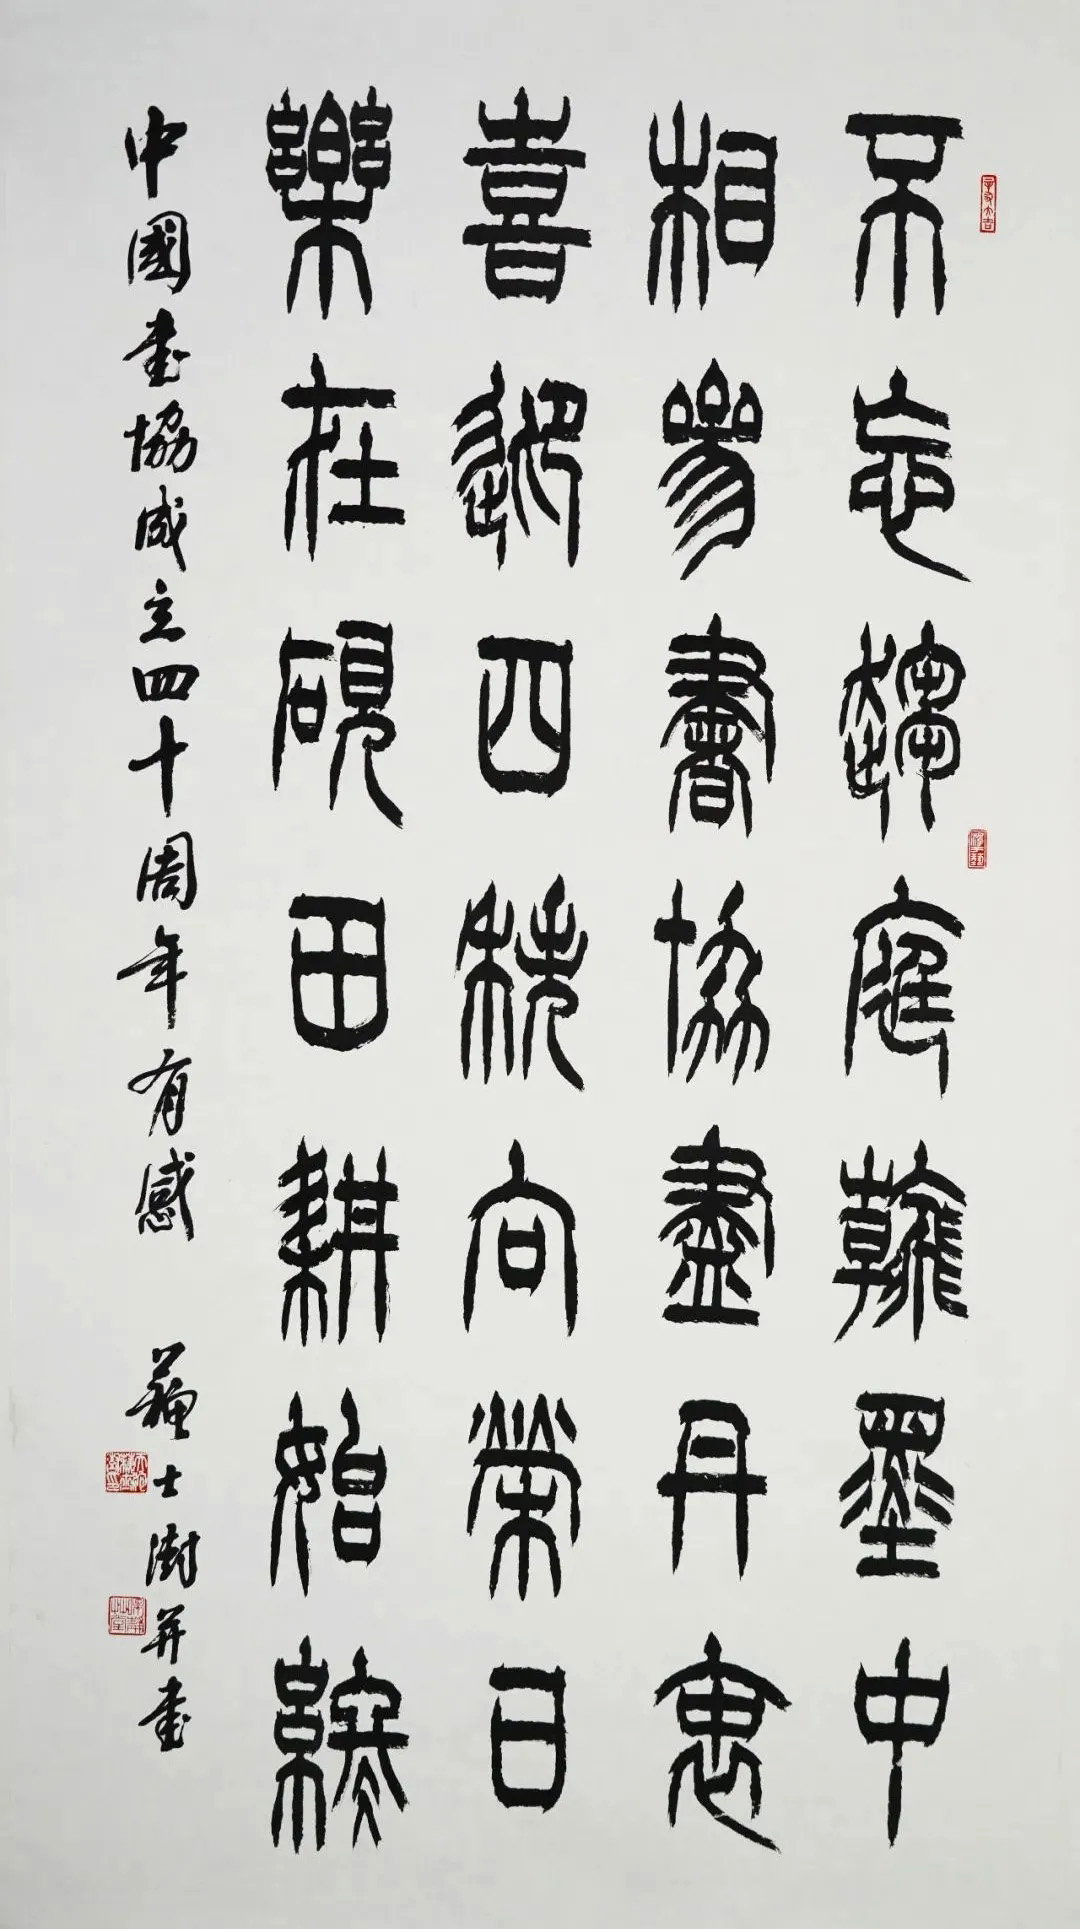 不忘趨庭翰墨中
相參書協盡丹衷
喜迎四秩向榮日
樂在硯田耕始終
中國書協成立四十周年有感 蘇士澍并書